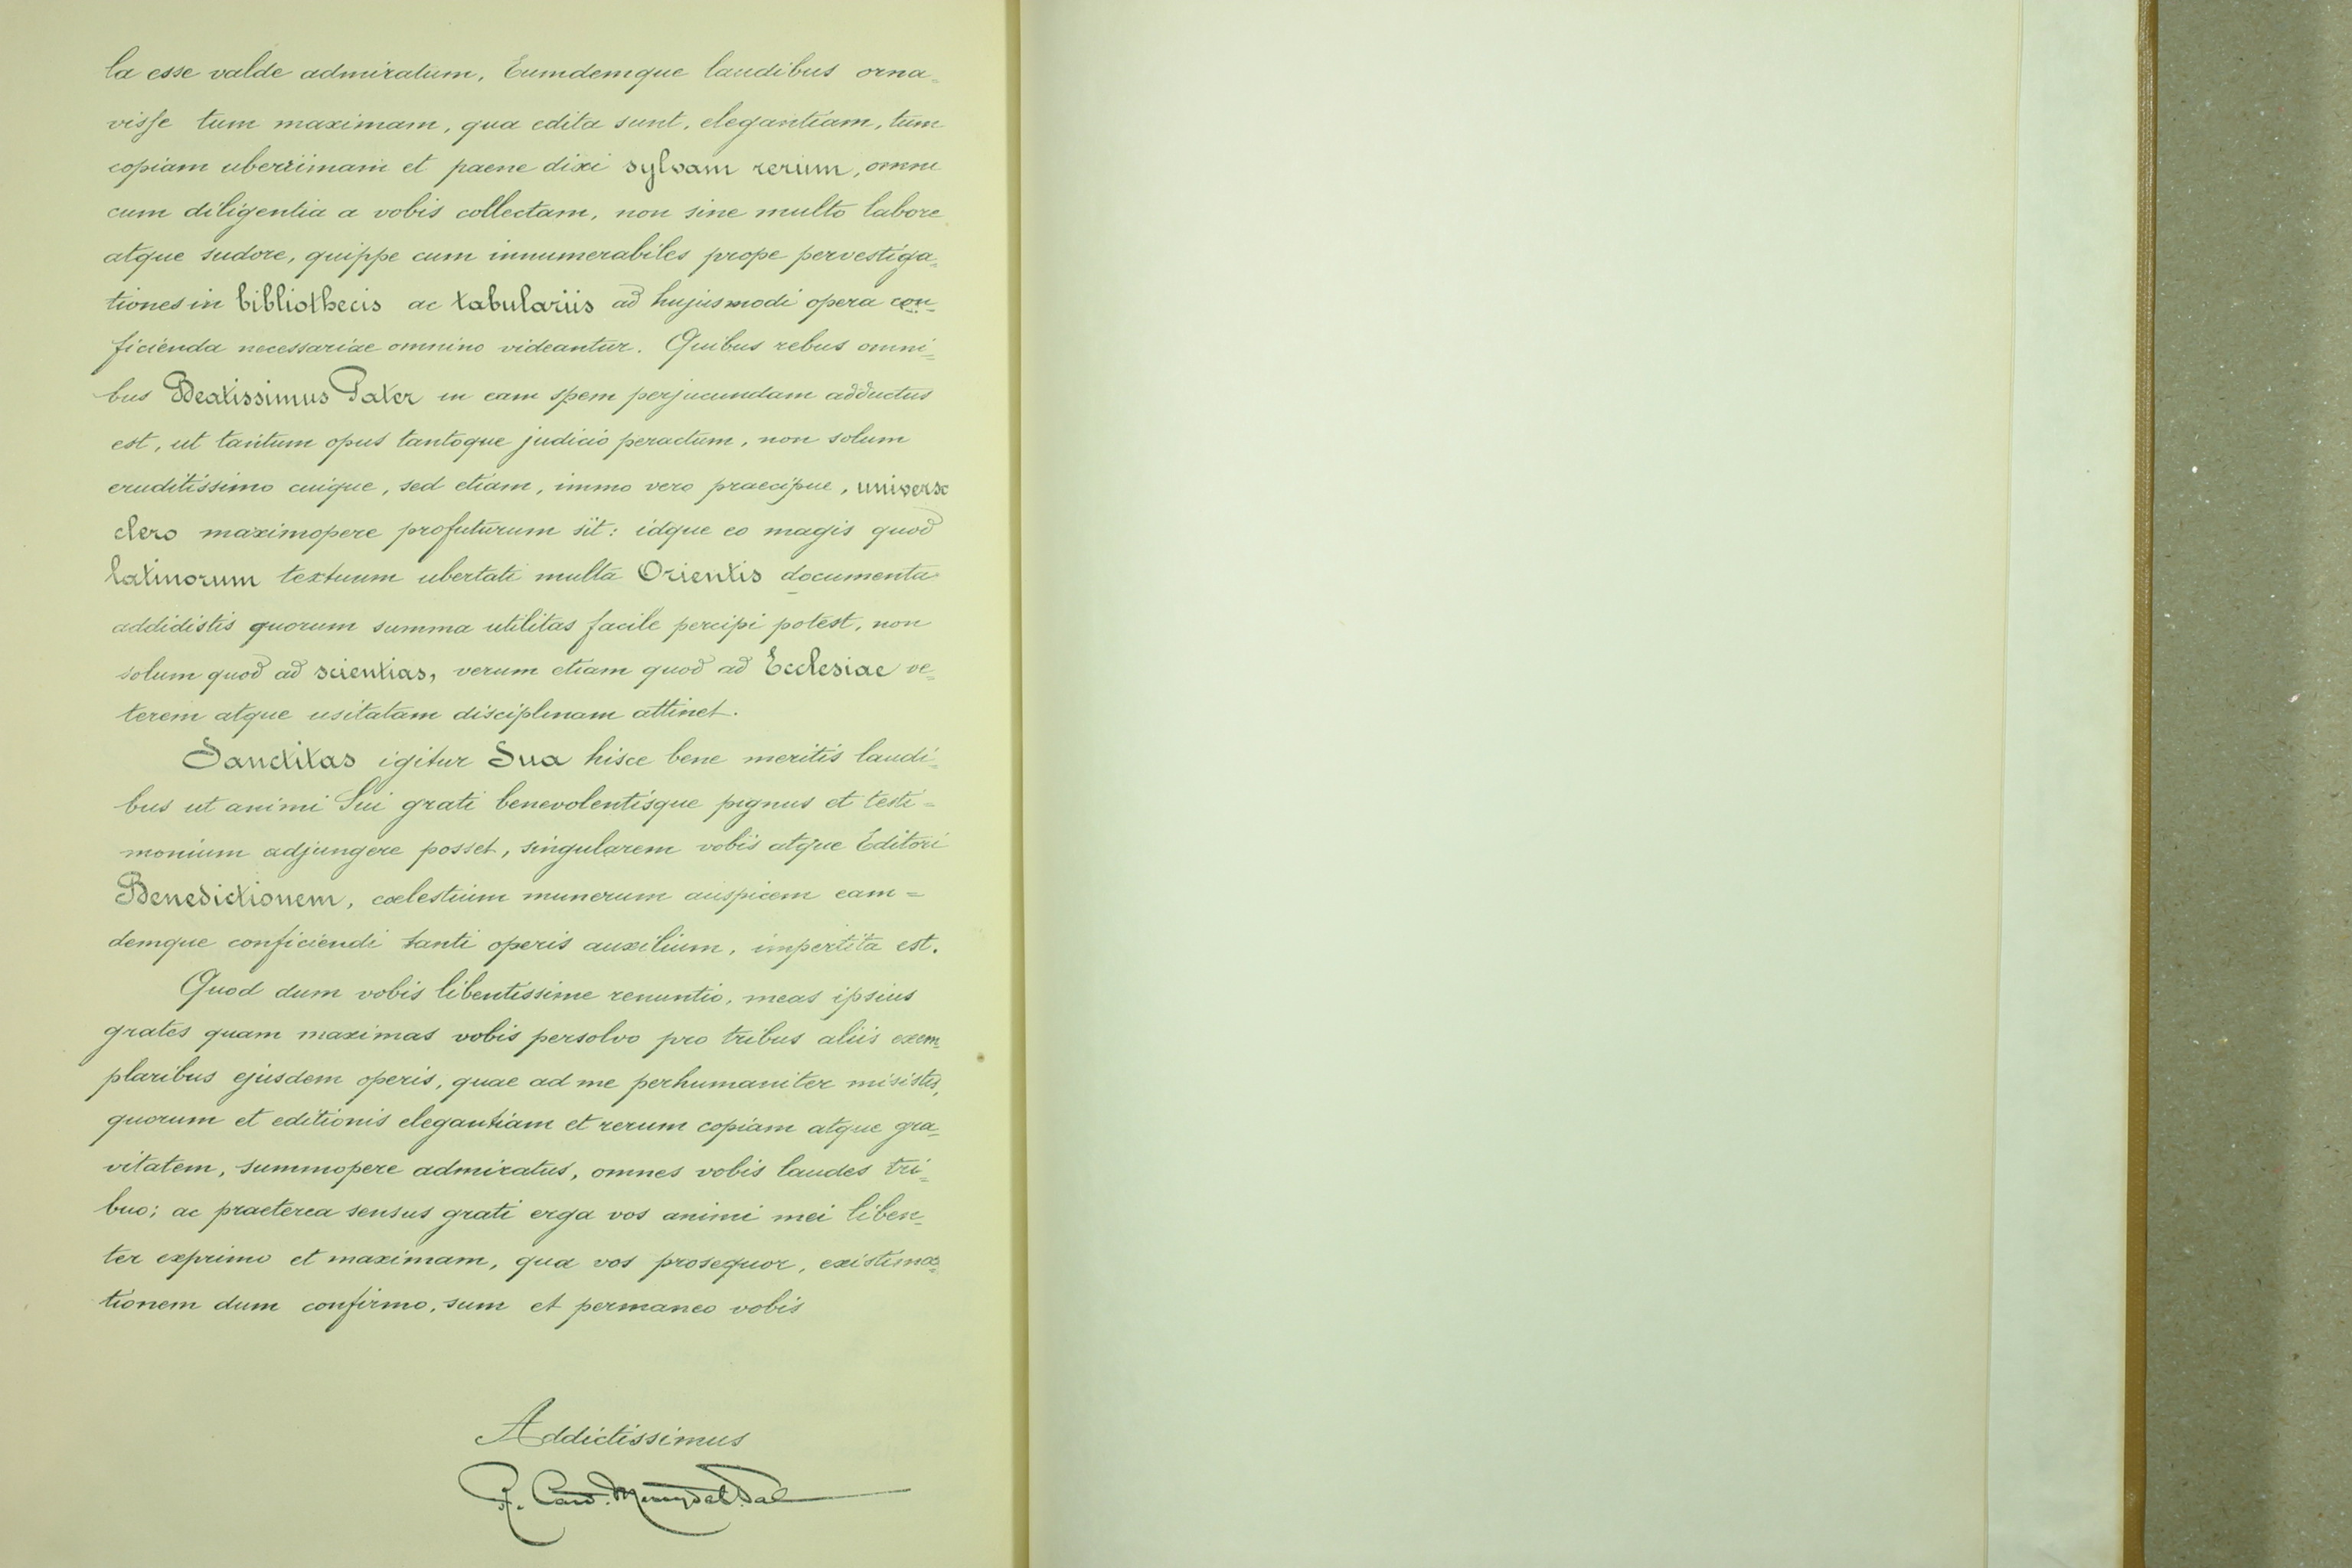 la esse valde admiratum, Eumdemque laudibus orna-
visse tum maximam, qua edita sunt, elegantiam, tum
copiam uberrimam et paene dixi sylvam rerum, omni
cum diligentia a vobis collectam, non sine multo labore
atque sudore, quippe cum innumerabiles prope pervestiga-
tiones in bibliothecis ac tabulariis ad hujusmodi opera con-
ficienda necessariae omnino videantur. Quibus rebus omni-
bus Beatissimus Pater in eam spem perjucundam adductus
est, ut tantum opus tantoque judicio peractum, non solum
eruditissimo cuique, sed etiam, immo vero praecipue, universo
clero maximopere profuturum sit: idque eo magis quod
latinorum textuum ubertati multa Orientis documenta
addidistis quorum summa utilitas facile percipi potest, non
solum quod ad scientias, verum etiam quod ad Ecclesiae ve-
terem atque usitatam disciplinam attinet.
Sanctitas igitur Sua hisce bene meritis laudi-
bus ut animi Sui grati benevolentisque pignus et testi=
monium adjungere posset, singularem vobis atque Editori
Benedictionem, coelestium munerum auspicem eam=
demque conficiendi tanti operis auxilium, impertita est.
Quod dum vobis libentissime renuntio, meas ipsius
grates quam maximas vobis persolvo pro tribus aliis exem-
plaribus ejusdem operis, quae ad me perhumaniter misistis,
quorum et editionis elegantiam et rerum copiam atque gra-
vitatem, summopere admiratus, omnes vobis laudes tri-
buo; ac praeterea sensus grati erga vos animi mei liben-
ter exprimo et maximam, qua vos prosequor, existima-
tionem dum confirmo, sum et permaneo vobis
Addictissimus
R. Card. Merry del Val